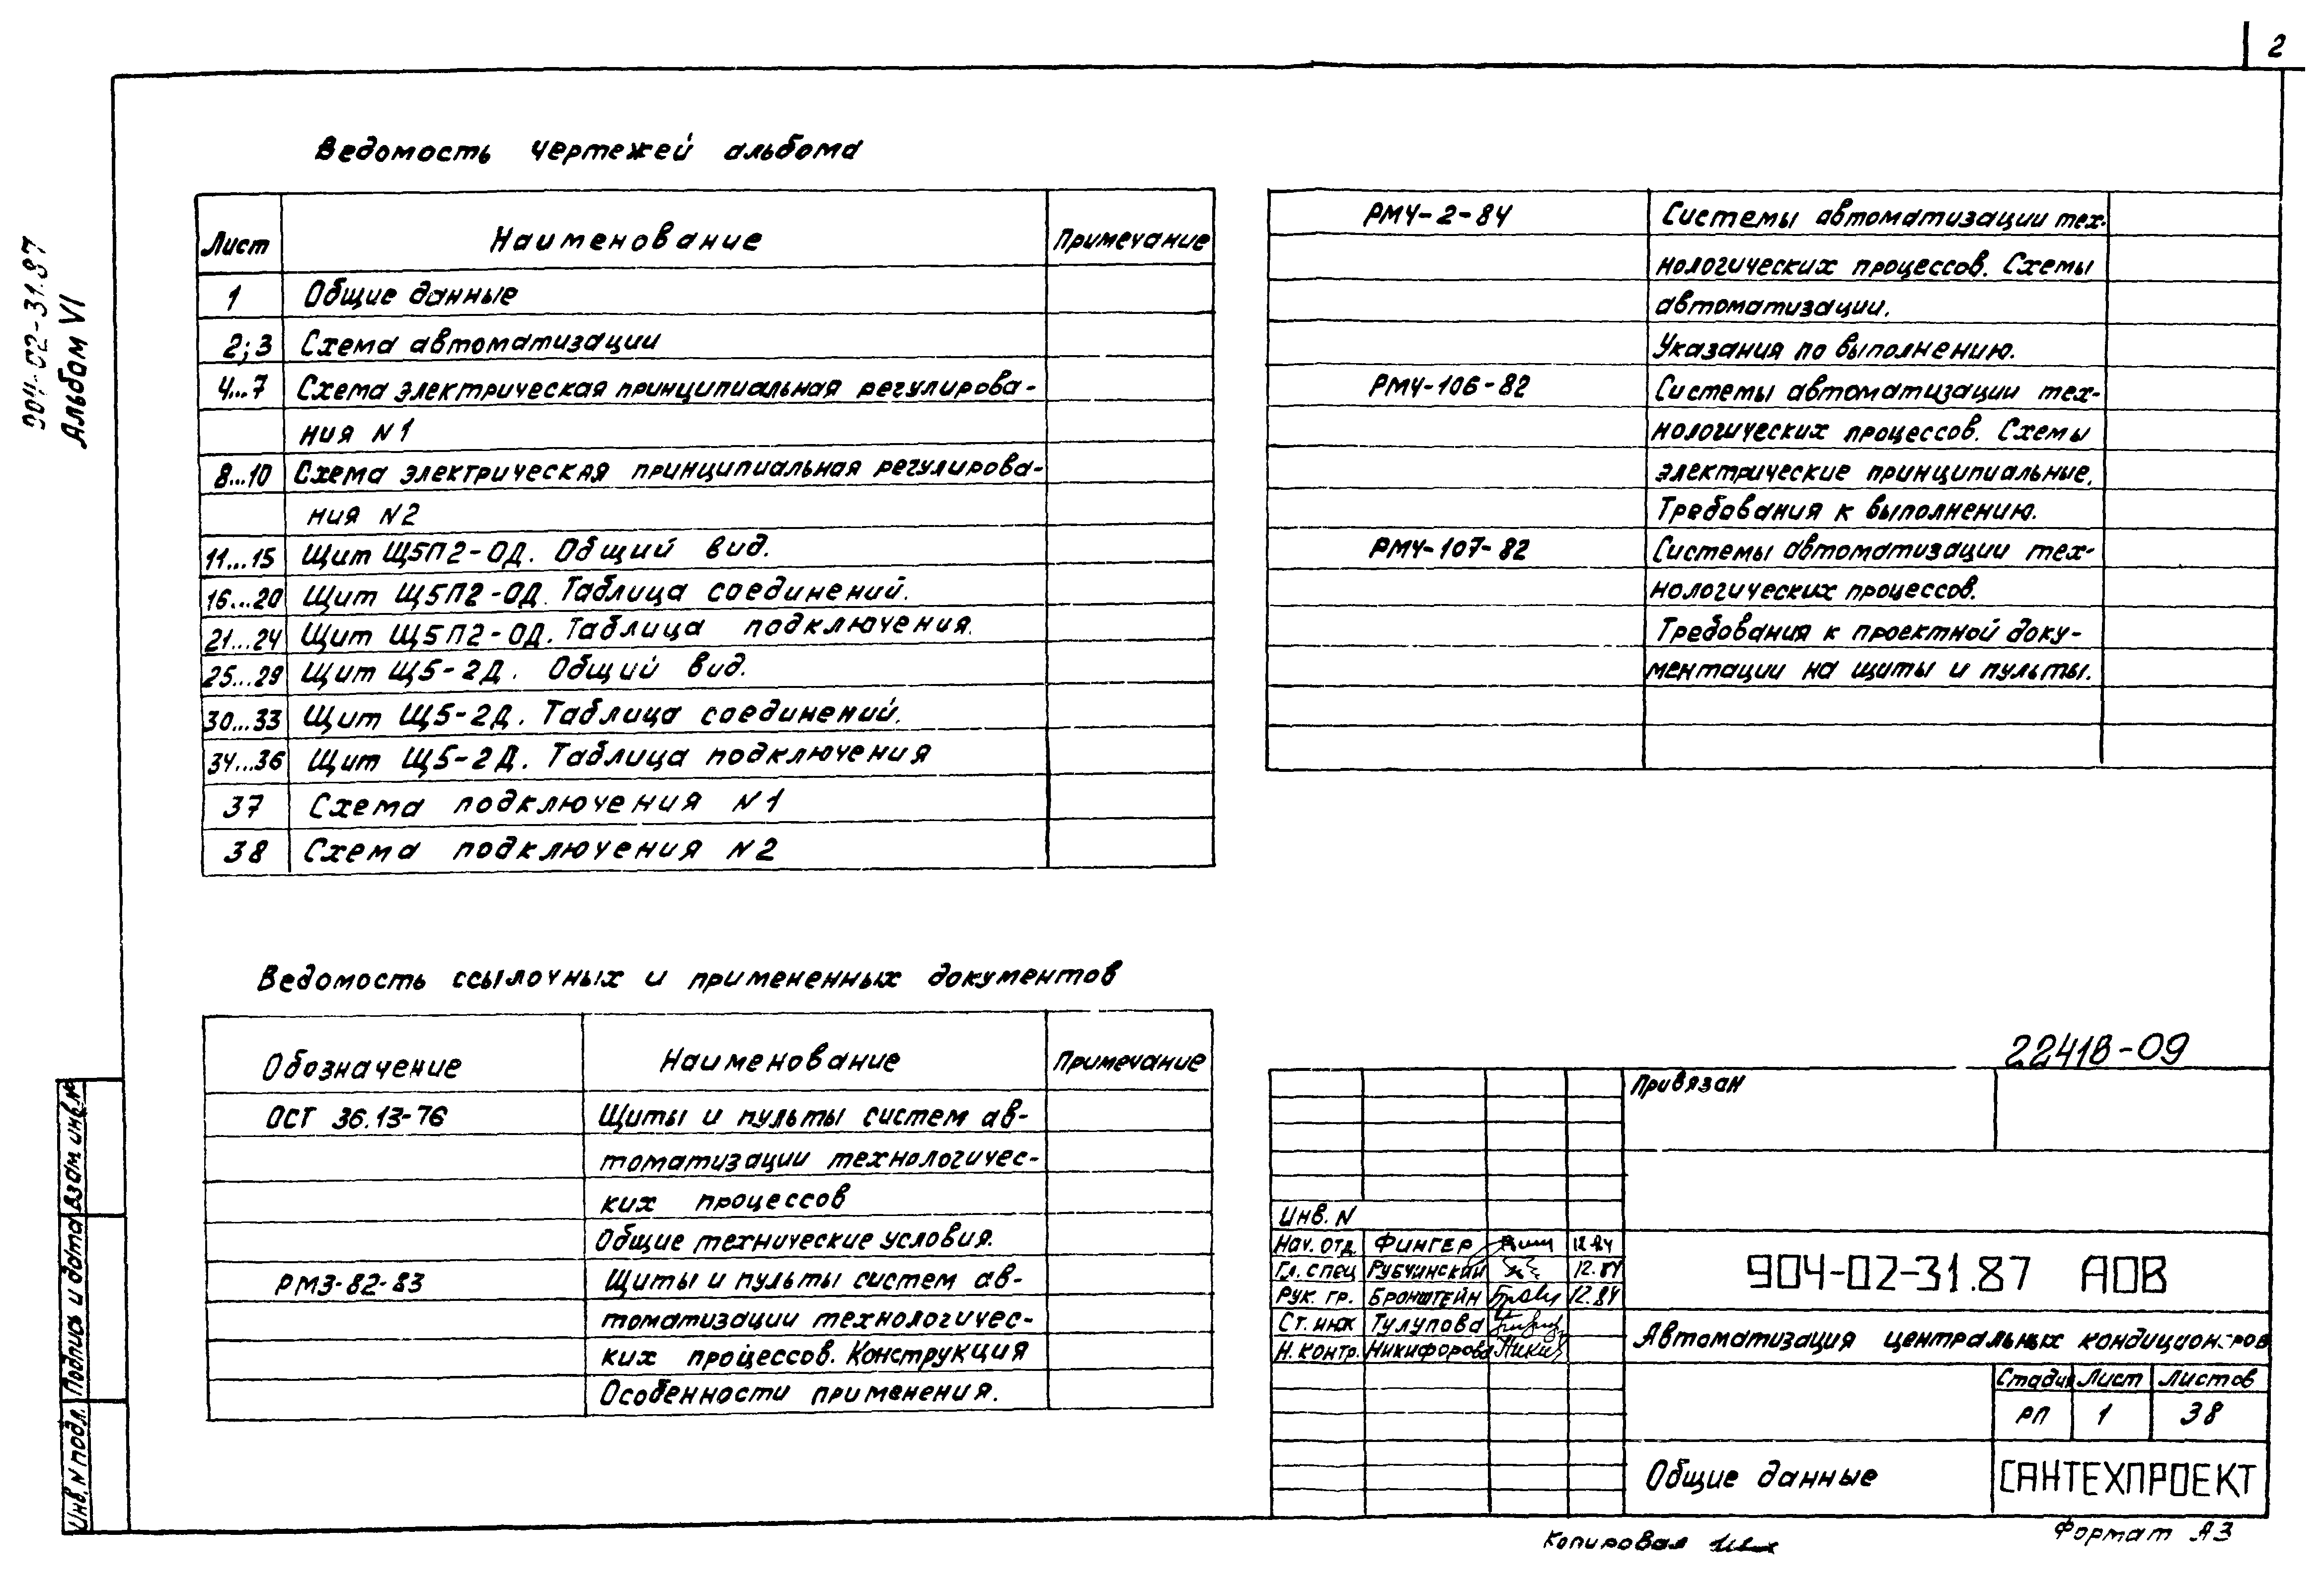 2
904-02-31.87
Альбом VI
Ведомость чертежей альбома
Лист Наименование Примечание
1 Общие данные
2;3 Схема автоматизации
4...7 Схема электрическая принципиальная регулирова-
ния N1
8...10 Схема электрическая принципиальная регулирова-
ния N2
11...15 Щит Щ5П2-ОД. Общий вид.
16...20 Щит Щ5П2-ОД. Таблица соединений.
21...24 Щит Щ5П2-ОД. Таблица подключения.
25...29 Щит Щ5-2Д. Общий вид.
30...33 Щит Щ5-2Д. Таблица соединений.
34...36 Щит Щ5-2Д. Таблица подключения
37 Схема подключения N1
38 Схема подключения N2
РМ4-2-84 Системы автоматизации тех-
нологических процессов. Схемы
автоматизации.
Указания по выполнению.
РМ4-106-82 Системы автоматизации тех-
нологических процессов. Схемы
электрические принципиальные.
Требования к выполнению.
РМ4-107-82 Системы автоматизации тех-
нологических процессов.
Требования к проектной доку-
ментации на щиты и пульты.
Ведомость ссылочных и примененных документов
Обозначение Наименование Примечание
ОСТ 36.13-76 Щиты и пульты систем ав-
томатизации технологичес-
ких процессов
Общие технические условия.
РМ3-82-83 Щиты и пульты систем ав-
томатизации технологичес-
ких процессов. Конструкция
Особенности применения.
22418-09
Привязан
Инв. N
Нач. отд. Фингер 12.84
Гл. спец Рубчинский 12.84
Рук. гр. Бронштейн 12.84
Ст. инж Тулупова
Н. контр. Никифорова
904-02-31.87 АОВ
Автоматизация центральных кондиционеров
Стадия Лист Листов
РП 1 38
Общие данные
САНТЕХПРОЕКТ
Копировал
Формат А3
Взам инв.№
Подпись и дата
Инв. N подл.